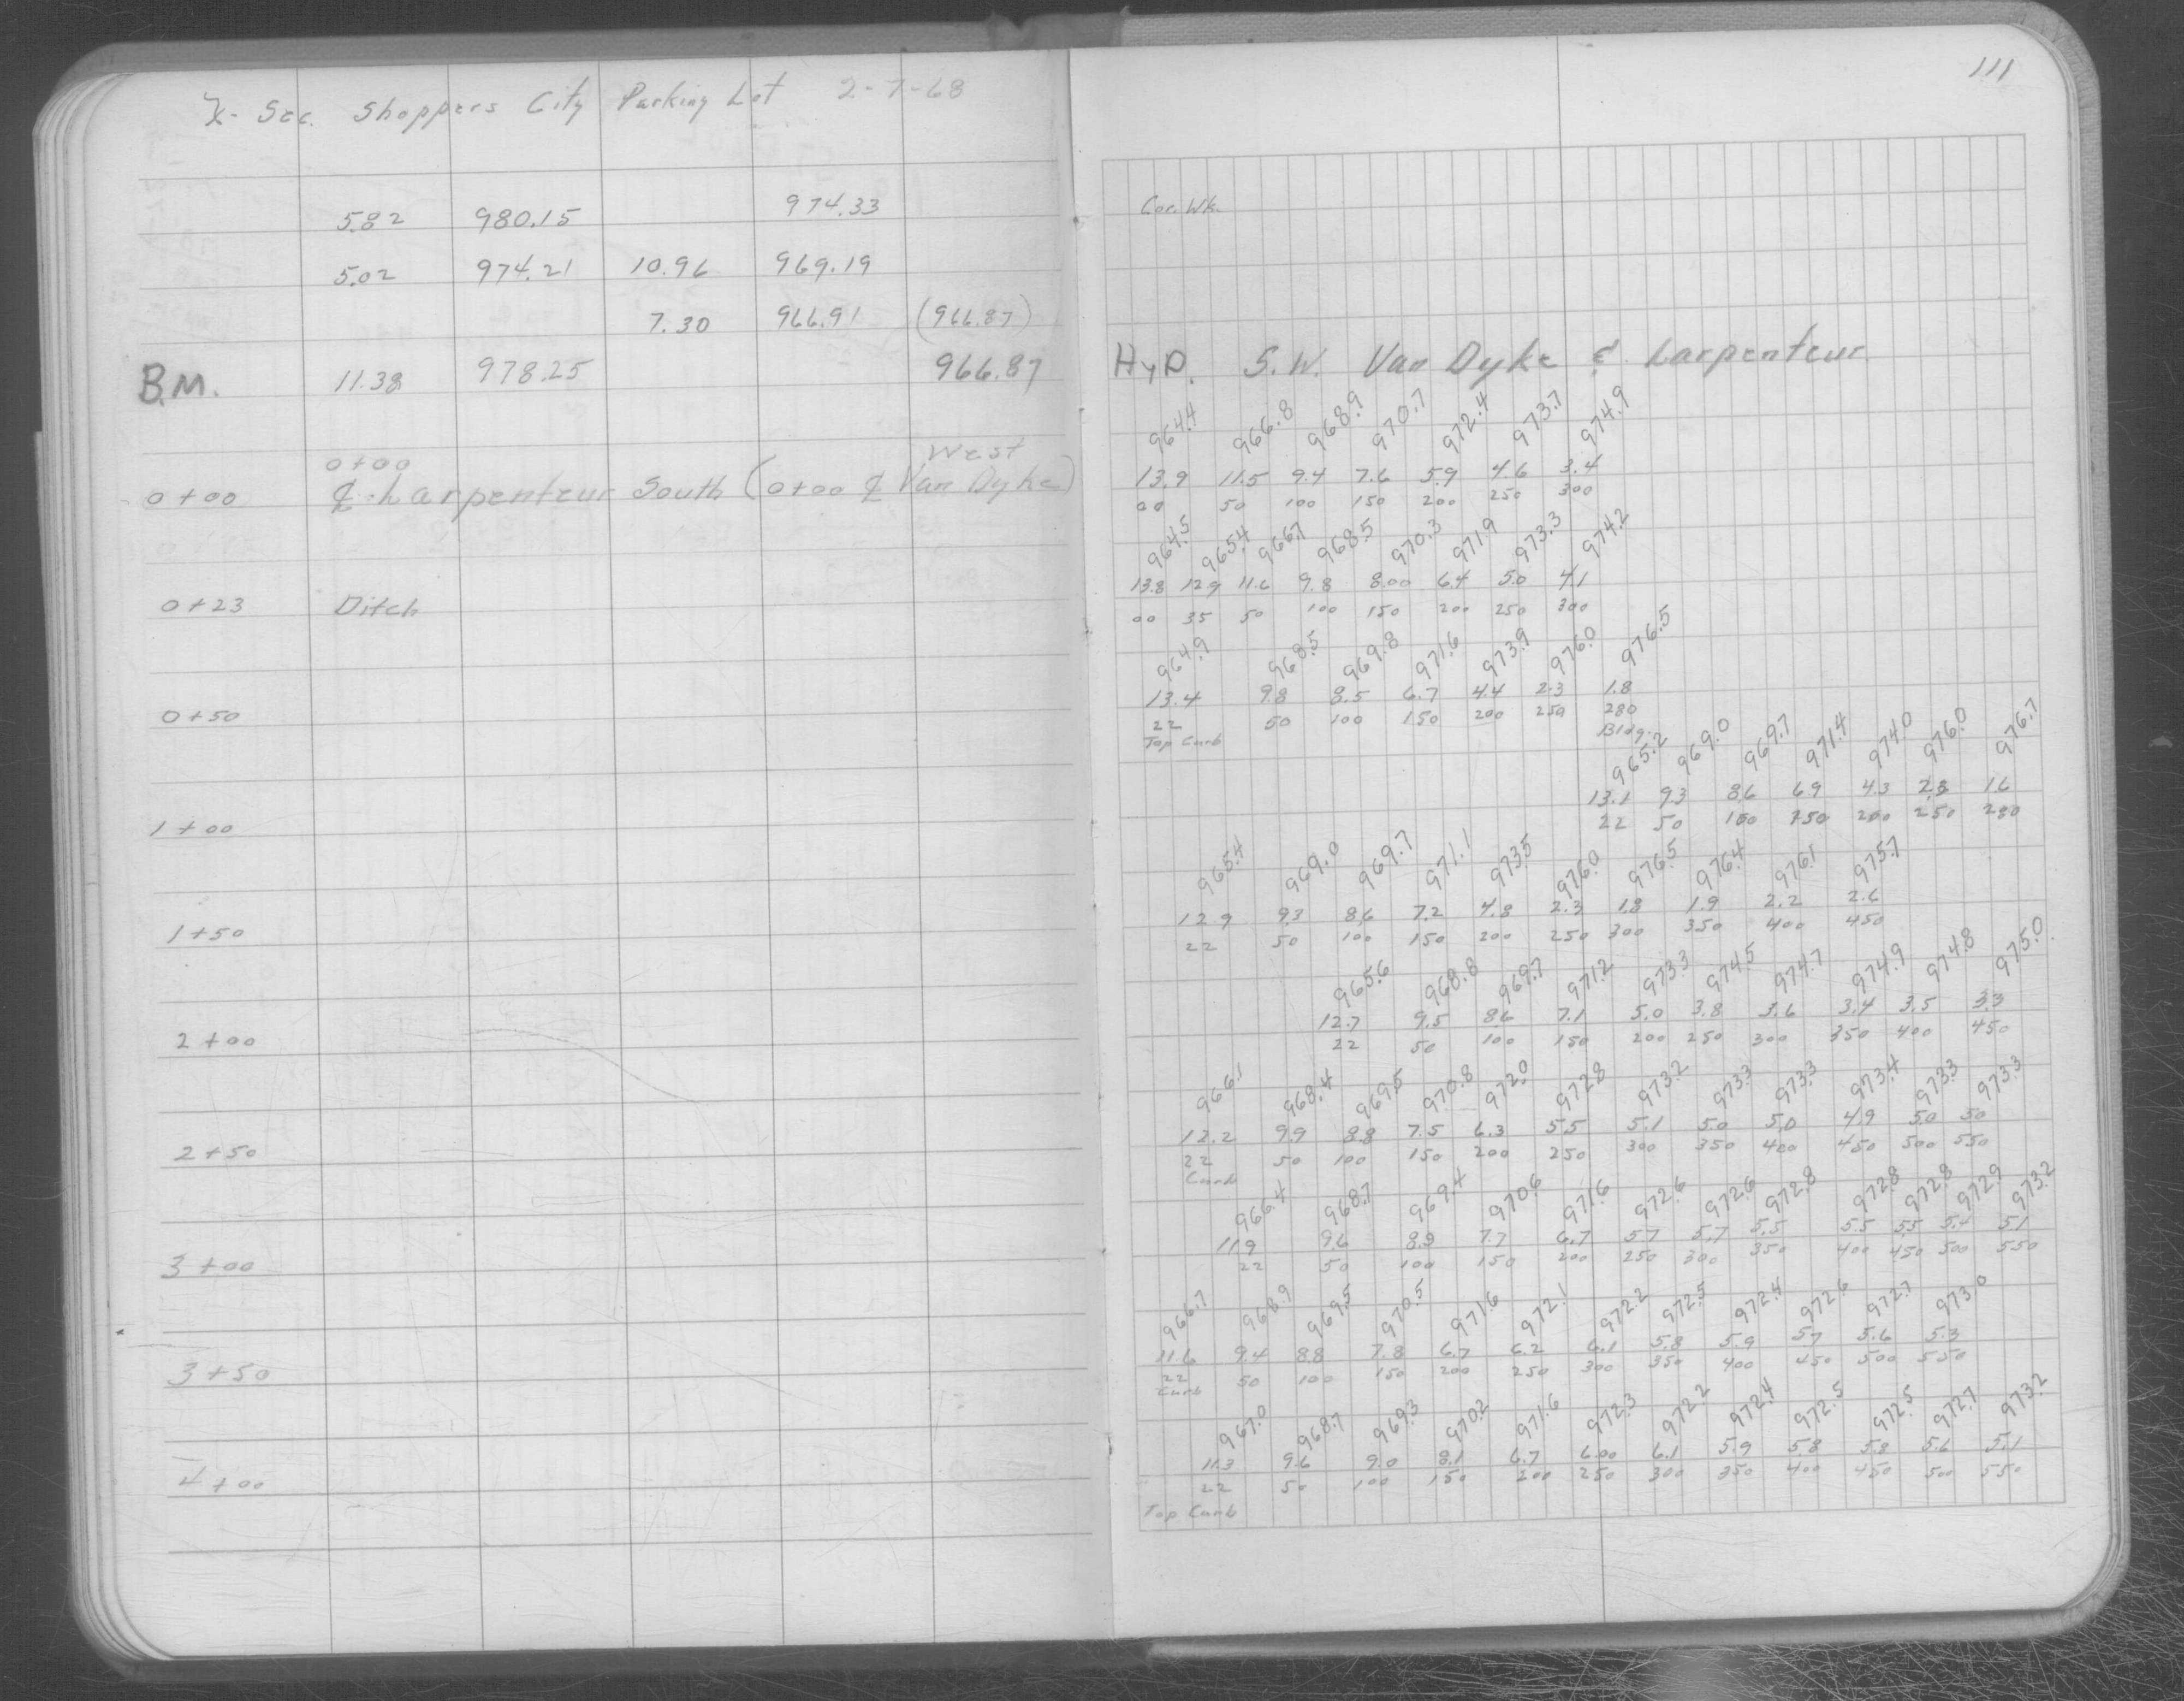 X-Sec. Shoppers City Parking Lot 2-7-68
5.82 980.15 974.33
5.02 974.21 10.96 969.19
7.30 966.91 (966.87)
B.M. 11.38 978.25 966.87
West
0+00
0+00 ₵ Larpenteur South (0+00 ₵ Van Dyke)
0+23 Ditch
0+50
1+00
1+50
2+00
2+50
3+00
3+50
4+00
111
Coc. Wk.
HyD. S.W. Van Dyke & Larpenteur
964.4 966.8 968.9 970.7 972.4 973.7 974.9
13.9 11.5 9.4 7.6 5.9 4.6 3.4
00 50 100 150 200 250 300
964.5 965.4 966.7 968.5 970.3 971.9 973.3 974.2
13.8 12.9 11.6 9.8 8.00 6.4 5.0 4.1
00 35 50 100 150 200 250 300
964.9 968.5 969.8 971.6 973.9 976.0 976.5
13.4 9.8 8.5 6.7 4.4 2.3 1.8
22 50 100 150 200 250 280
Top Curb Bldg.
965.2 969.0 969.7 971.4 974.0 976.0 976.7
13.1 9.3 8.6 6.9 4.3 2.3 1.6
22 50 100 150 200 250 280
965.4 969.0 969.7 971.1 973.5 976.0 976.5 976.4 976.1 975.7
12.9 9.3 8.6 7.2 4.8 2.3 1.8 1.9 2.2 2.6
22 50 100 150 200 250 300 350 400 450
965.6 968.8 969.7 971.2 973.3 974.5 974.7 974.9 974.8 975.0
12.7 9.5 8.6 7.1 5.0 3.8 3.6 3.4 3.5 3.3
22 50 100 150 200 250 300 350 400 450
966.1 968.4 969.5 970.8 972.0 972.8 973.2 973.3 973.3 973.4 973.3 973.3
12.2 9.9 8.8 7.5 6.3 5.5 5.1 5.0 5.0 4.9 5.0 5.0
22 50 100 150 200 250 300 350 400 450 500 550
Curb
966.4 968.7 969.4 970.6 971.6 972.6 972.6 972.8 972.8 972.8 972.9 973.2
11.9 9.6 8.9 7.7 6.7 5.7 5.7 5.5 5.5 5.5 5.4 5.1
22 50 100 150 200 250 300 350 400 450 500 550
966.7 968.9 969.5 970.5 971.6 972.1 972.2 972.5 972.4 972.6 972.7 973.0
11.6 9.4 8.8 7.8 6.7 6.2 6.1 5.8 5.9 5.7 5.6 5.3
22 50 100 150 200 250 300 350 400 450 500 550
Curb
967.0 968.7 969.3 970.2 971.6 972.3 972.2 972.4 972.5 972.5 972.7 973.2
11.3 9.6 9.0 8.1 6.7 6.00 6.1 5.9 5.8 5.8 5.6 5.1
22 50 100 150 200 250 300 350 400 450 500 550
Top Curb